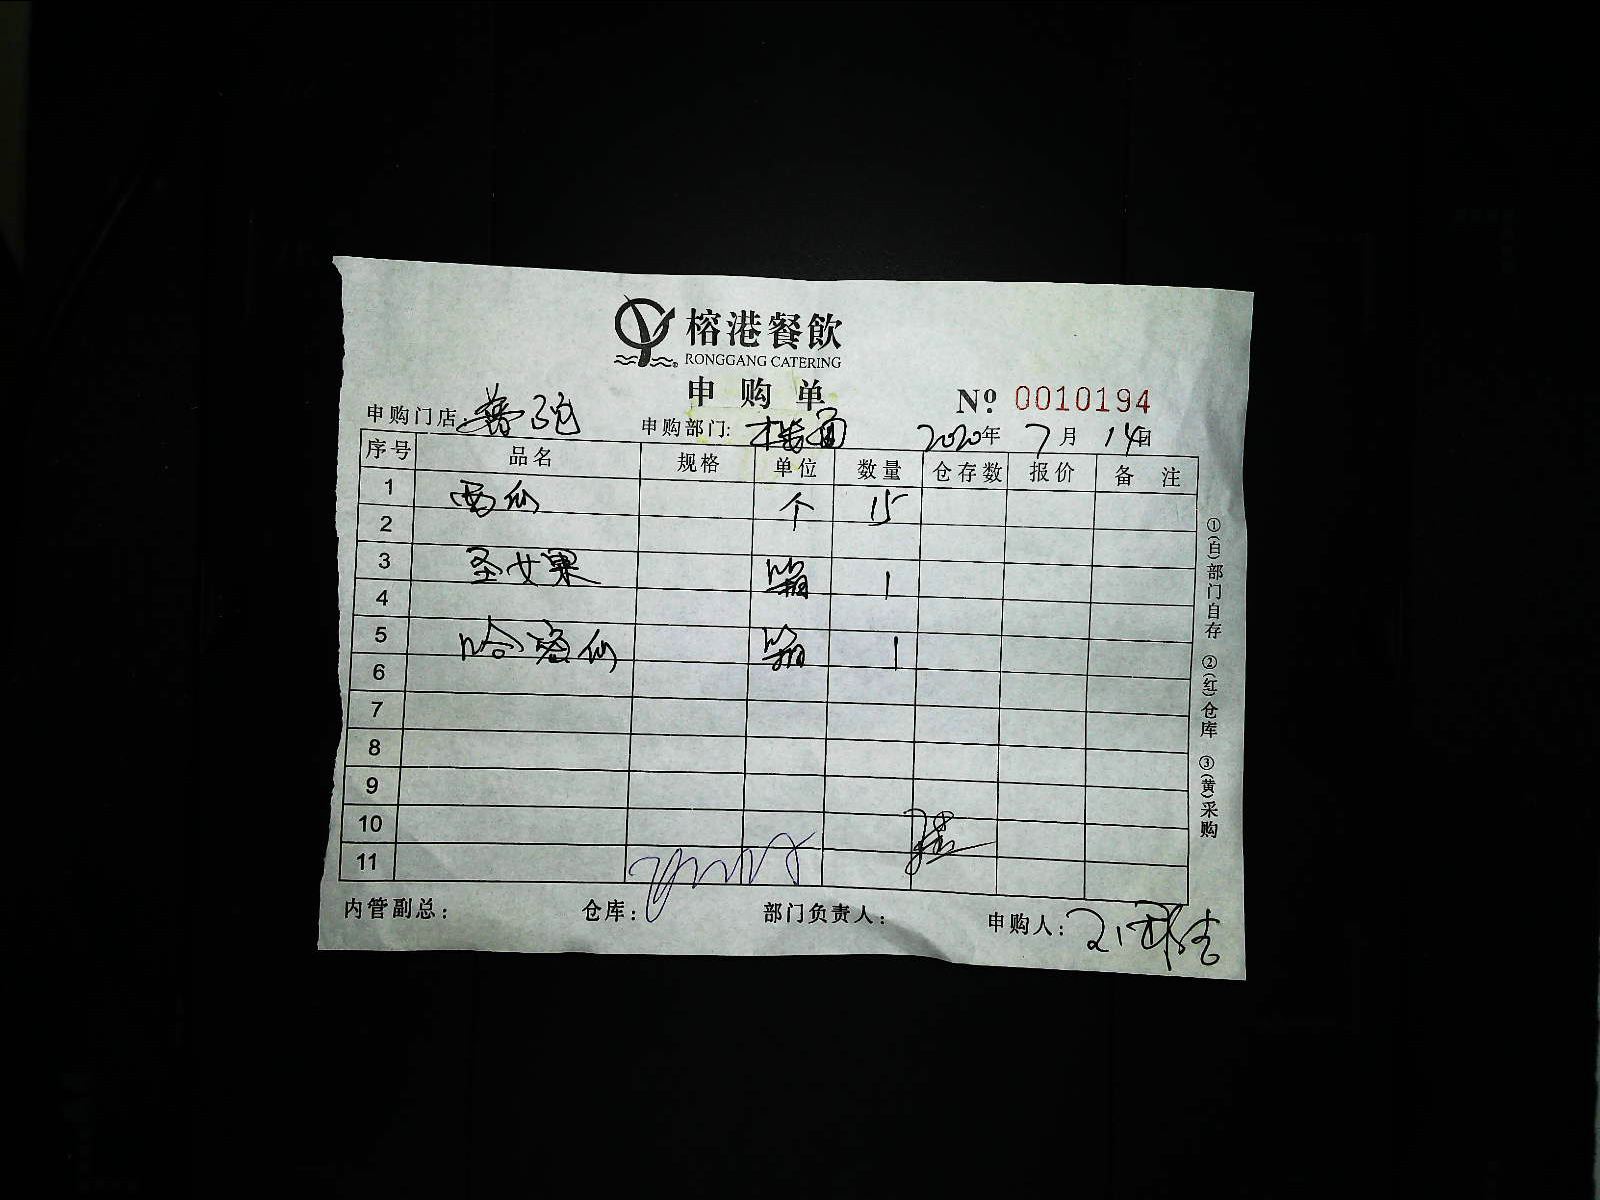 榕港餐飲
RONGGANG CATERING
申购单
№ 0010194
申购门店: 申购部门: 楼面 2020年 7月 14日
序号 品名 规格 单位 数量 仓存数 报价 备注
1 西仙 个 15
2
3 圣女果 箱 1
4
5 哈密仙 箱 1
6
7
8
9
10
11
内管副总: 仓库: 部门负责人: 申购人:
①(白)部门自存 ②(红)仓库 ③(黄)采购